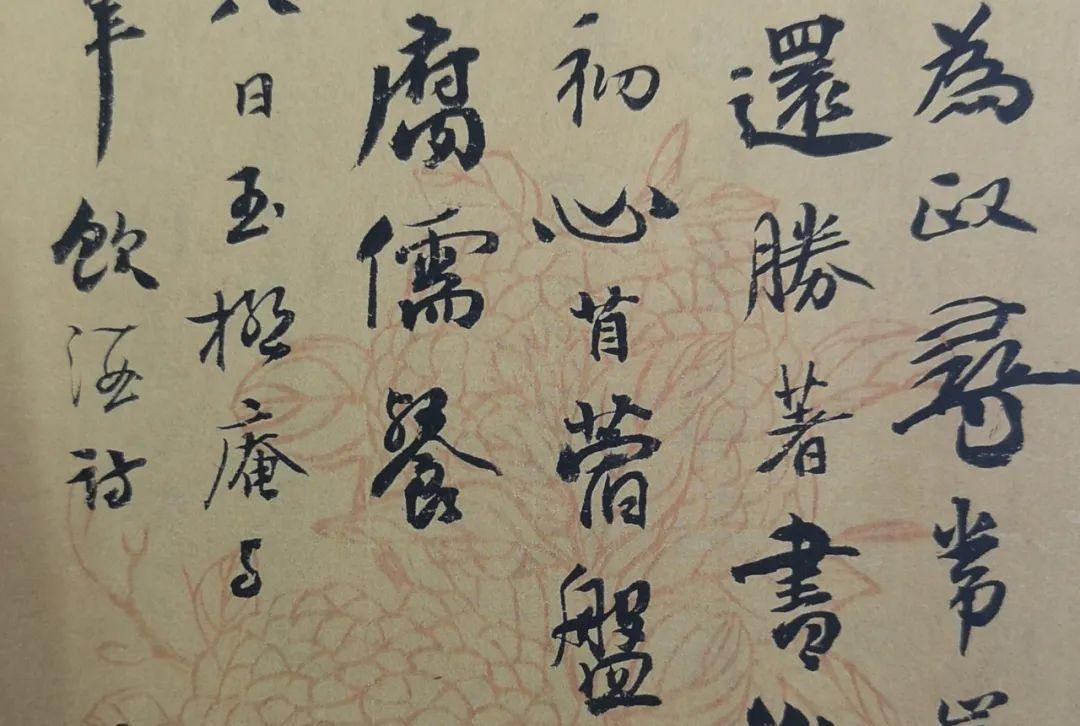 為政尋常
還勝著書
初心苜蓿盤
腐儒餐
八日玉極庵与
年飲酒詩